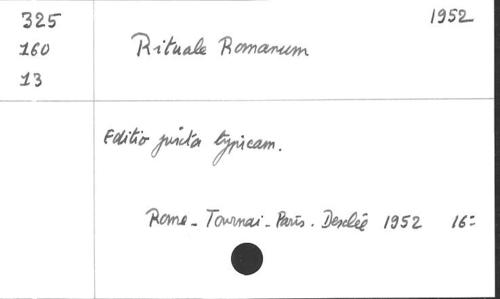 325 1952
160 Rituale Romanum
13
Editio juxta typicam.
Rome - Tournai - Paris. Desclée 1952 16=